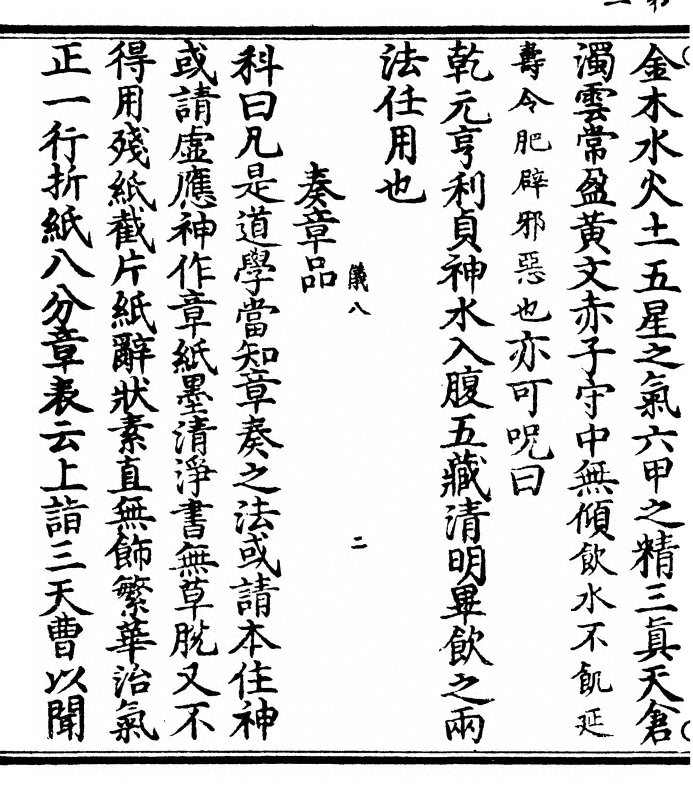 金木水火土五星之氣六甲之精三眞天倉
濁雲常盈黃文赤子守中無傾飮水不飢延
壽令肥辟邪惡也亦可呪曰
乾元亨利貞神水入腹五藏清明畢飮之兩
法任用也
儀八 二
奏章品
科曰凡是道學當知章奏之法或請本住神
或請虛應神作章紙墨清淨書無草脫又不
得用殘紙截片紙辭狀素直無飾繁華治氣
正一行折紙八分章表云上詣三天曹以聞